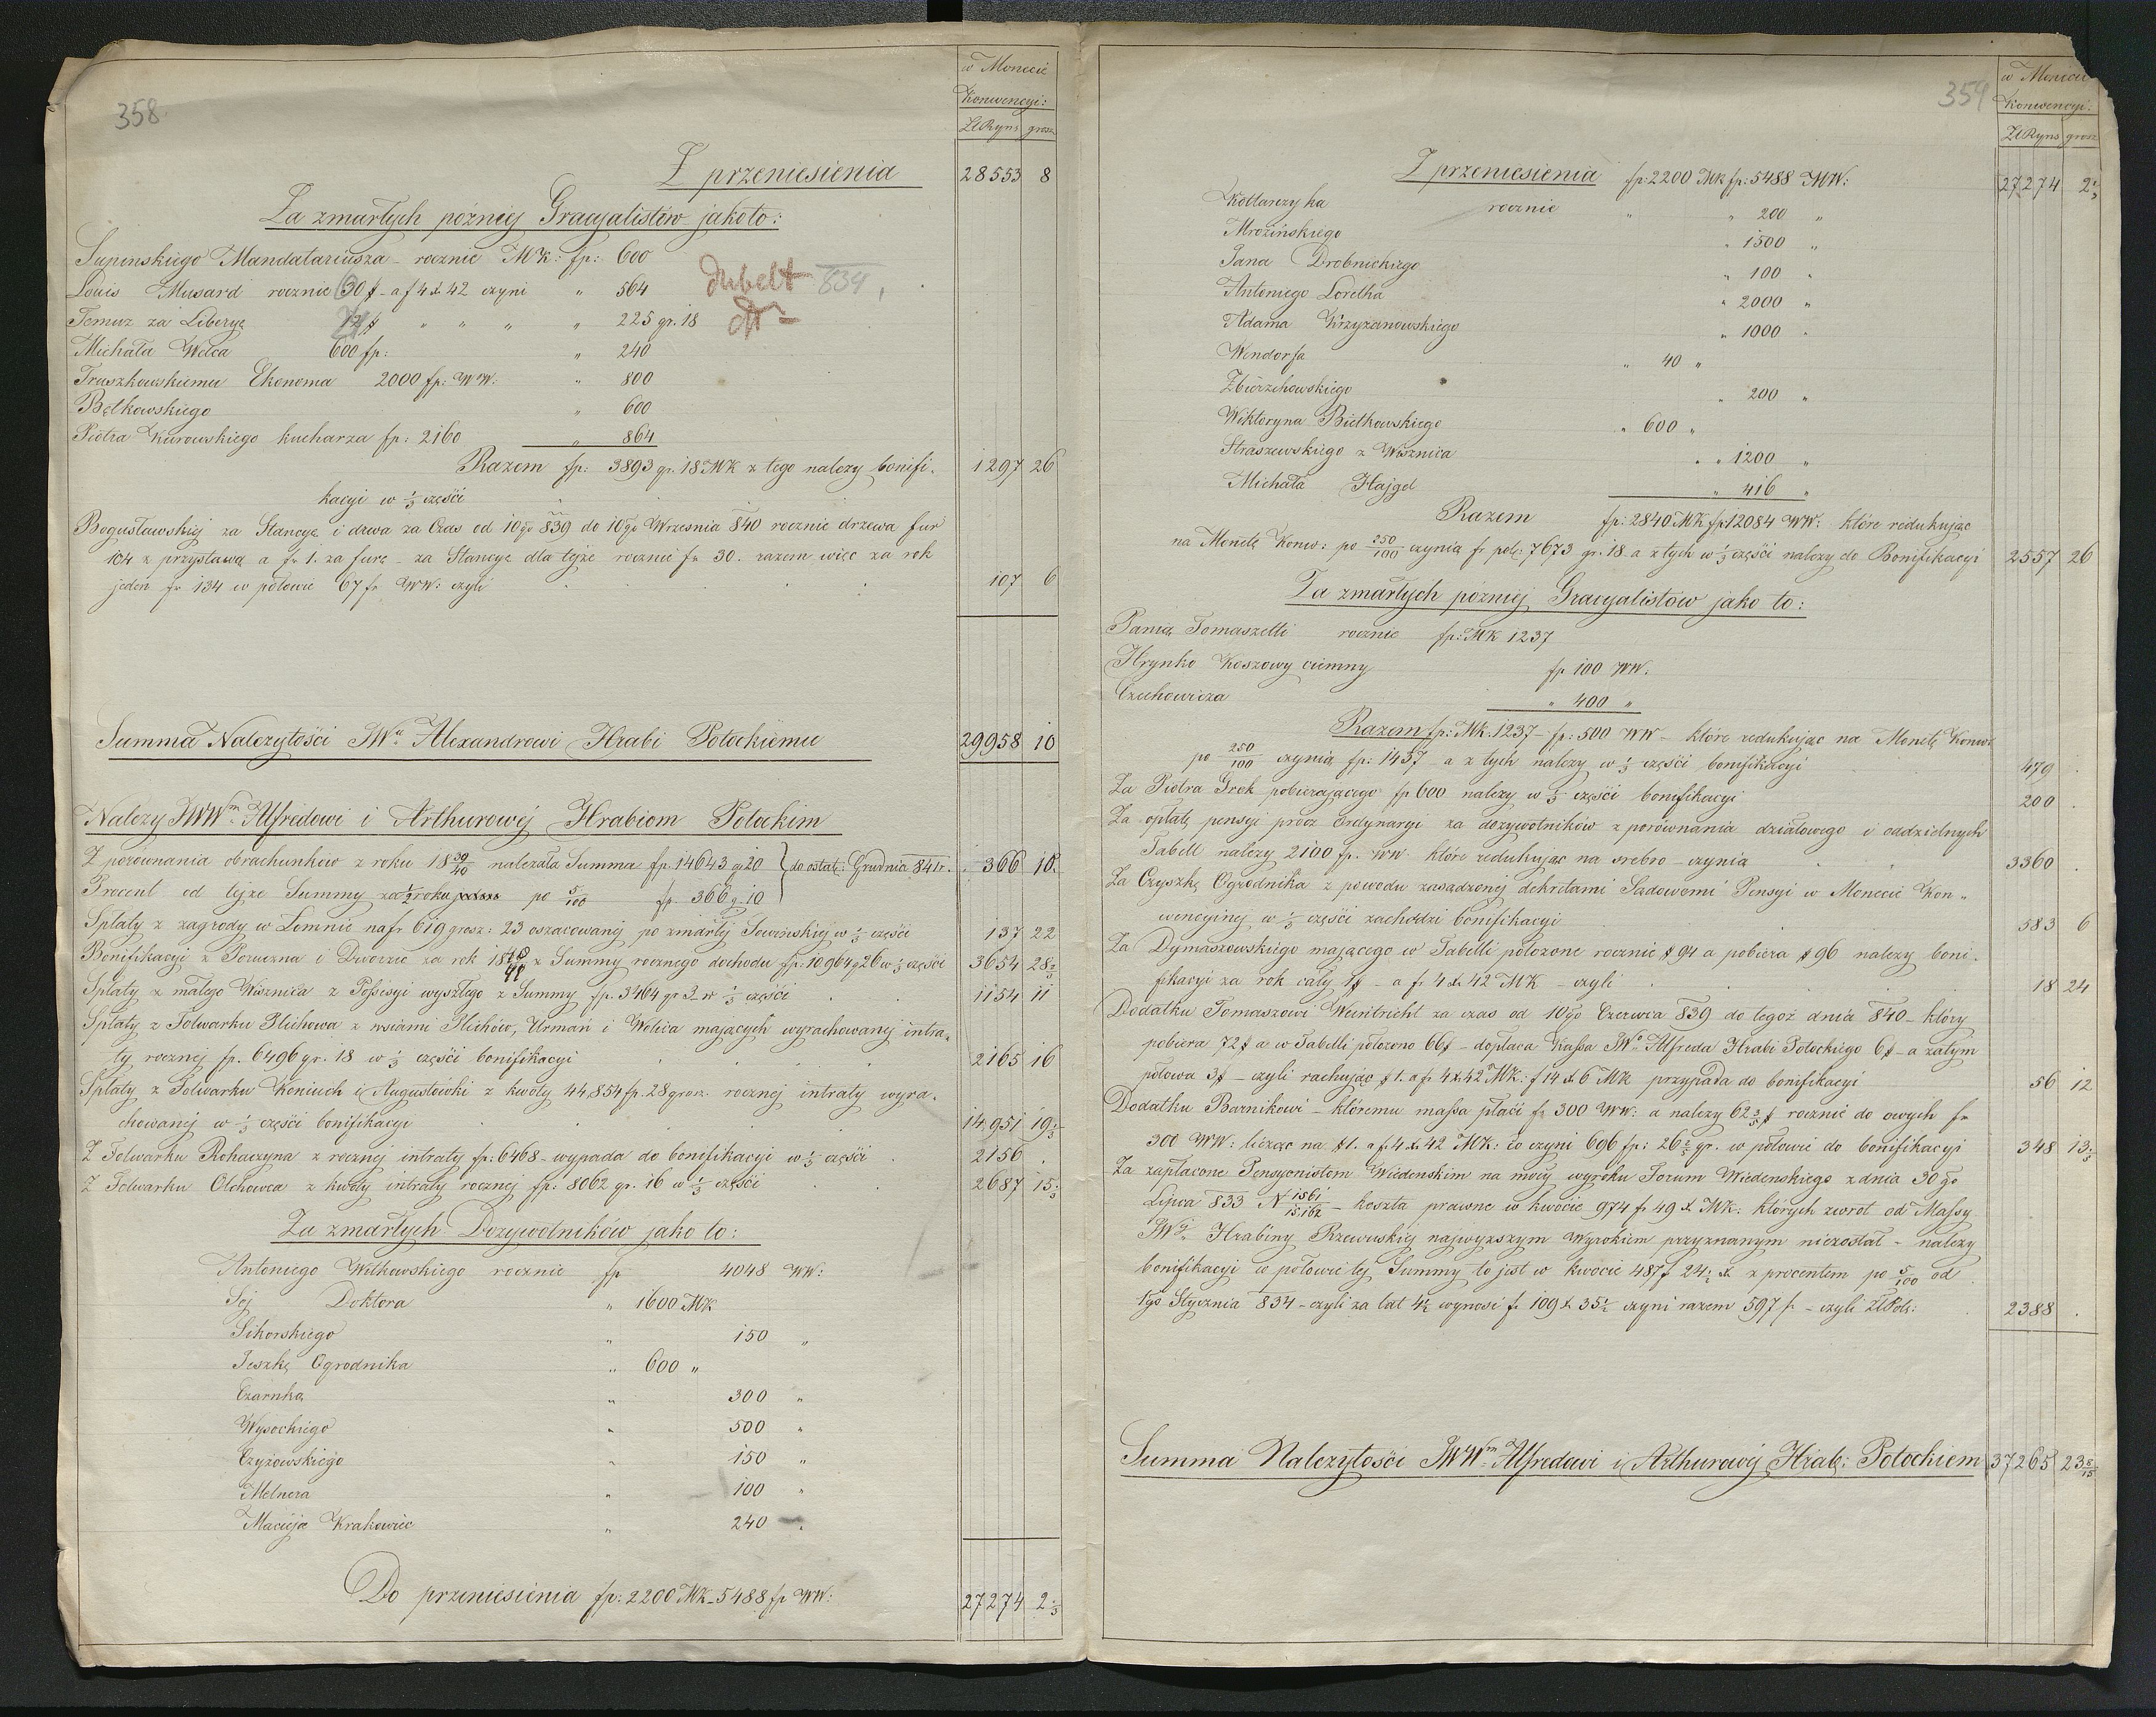 358
w Monecie
Konwencyi:
ZłRyns grosz
Z przeniesienia 28553 8
Za zmarłych poźniej Gracyalistów jako to:
Supinskiego Mandataryusza - rocznie MK: fp: 600
Louis Musard rocznie 30 # - a f 4 x 42 czyni " 564 dubelt 834
Temuz za Liberyę 12 # " " " " 225 gr. 18 dtto
Michała Welca 600 fp: " 240
Truszkowskiemu Ekonoma 2000 fp: WW: " 800
Bętkowskiego " 600
Piotra Kurowskiego kucharza fp: 2160 " 864
Razem fp: 3893 gr. 18 MK z tego nalezy bonifi- 1297 26
kacyi w 1/3 części
Bogusławskiej za Stancyę i drwa za Czas od 10go 839 do 10go Wrzesnia 840 rocznie drzewa fur
104 z przystawą a fr 1. za furę - za Stancyę dla tejze rocznie fr 30. razem więc za rok
jeden fr 134 w połowie 67 fr WW: czyli 107 6
Summa Nalezytości JWu Alexandrowi Hrabi Potockiemu 29958 10
Nalezy JWWm Alfredowi i Arthurowéj Hrabiom Potockim
Z porównania obrachunków z roku 18 39/40 nalezała Summa fp. 14643 g 20 } do ostatę: Grudnia 841 r. 366 10.
Procent od tejze Summy za 1/2 roku po 5/100 fp. 366 g. 10
Spłaty z zagrody w Lomnie na fr 619 grosz: 23 oszacowanej po zmarłej w 1/3 części 137 22
Bonifikacyi z Poruczna i Dworzec za rok 18 40/41 z Summy rocznego dochodu fp. 10964 g 26 w 1/3 części 3654 28 2/3
Spłaty z małego Wisznica z Possesyi wyszłego z Summy fp. 3464 gr 3 - w 1/3 części 1154 11
Spłaty z Folwarku Plichowa z wsiami Plichów, Urmań i Wolica mających wyrachowanej intra-
ty rocznej fp. 6496 gr. 18 w 1/3 części bonifikacyi 2165 16
Spłaty z Folwarku Koniuch i Augustówki z kwoty 44,854 fp. 28 grosz. rocznej intraty wyra-
chowanej w 1/3 części bonifikacyi 14,951 19 1/3
Z Folwarku Rohaczyna z rocznej intraty fp: 6468 - wypada do bonifikacyi w 1/3 części 2156 .
Z Folwarku Olchowca z kwoty intraty rocznej fp: 8062 gr. 16 w 1/3 części 2687 15 1/3
Za zmarłych Dozywotników jako to:
Antoniego Witkowskiego rocznie fp 4048 WW:
Sej Doktora " 1600 MK
Sikorskiego " 150 "
Jeszkę Ogrodnika " 600 "
Czarnkę " 300 "
Wysockiego " 500 "
Czyżowskiego " 150 "
Melnera " 100 "
Macieja Krakowiec " 240 "
Do przeniesienia fp: 2200 MK - 5488 fp WW: 27274 2 1/3
359
w Monecie
Konwencyi:
ZłRyns grosz
Z przeniesienia fp: 2200 MK fp: 5488 WW: 27274 2 1/3
Kotlarczyka rocznie " " 200 "
Mrozińskiego " 1500 "
Jana Drobnickiego " 100 "
Antoniego Loretka " 2000 "
Adama Krzyzanowskiego " 1000 "
Wendorfa " 40 "
Zbierzchowskiego " 200 "
Wiktoryna Bietkowskiego " 600 "
Straszewskiego z Wisznica " " 1200 "
Michała Hajgel " 416 "
Razem fp: 2840 MK fp: 12084 WW: które redukując
na Monetę Konw: po 250/100 czynią fr polę: 7673 gr. 18 a z tych w 1/3 części nalezy do Bonifikacyi 2557 26
Za zmarłych pózniej Gracyalistów jako to:
Panią Tomaszetti rocznie fp: MK 1237
Hrynko Koszowy ciemny fp 100 WW:
Czechowicza " 400 "
Razem fp: MK. 1237 - fp: 500 WW - które redukując na Monetę Konw:
po 250/100 czynią fp: 1437 - a z tych nalezy w 1/3 części bonifikacyi 479 .
Za Piotra Grek pobierającego fp 600 nalezy w 1/3 części bonifikacyi 200 .
Za opłatę pensyi prócz Ordynaryi za dozywotników z porównania działowego i oddzielnych
Tabell nalezy 2100 fp. WW. które redukując na srebro - czynią 3360 .
Za Czyszkę Ogrodnika z powodu zasądzonej dekretami Sądowemi Pensyi w Monecie Kon-
wencyinej w 1/3 części zachodzi bonifikacyi 583 6
Za Dymaszowskiego mającego w Tabelli położone rocznie # 94 a pobiera # 96 nalezy boni-
fikacyi za rok cały 1 # - a fr 4 x 42 MK - czyli 18 24
Dodatku Tomaszowi Weintricht za czas od 10go Czerwca 839 do tegoż dnia 840 - który
pobiera 72 # a w Tabelli położono 66 # - dopłaca Kassa JWo Alfreda Hrabi Potockiego 6 # - a zatym
połowa 3 # - czyli rachując # 1. a fr 4 x 42 MK: f 14 x 6 MK przypada do bonifikacyi 56 12
Dodatku Barnikowi - któremu massa płaci fr 300 WW: a nalezy 62 2/5 # rocznie do owych fr
300 WW: licząc na # 1. a f 4 x 42 MK: co czyni 696 fp: 26 2/5 gr. w połowie do bonifikacyi 348 13 1/5
Za zapłacone Pensyonistom Wiedenskim na mocy wyroku Forum Wiedenskiego z dnia 30go
Lipca 833 N 1561/15,162 - koszta prawne w kwocie 974 fr 49 x MK. których zwrot od Massy
JWéj Hrabiny Rzewuskiej najwyzszym Wyrokiem przyznanym niezostał - nalezy
bonifikacyi w połowie tej Summy to jest w kwocie 487 f 24 1/2 x z procentem po 5/100 od
1go Stycznia 834 - czyli za lat 4 1/2 wynosi fr 109 x 35 1/2 czyni razem 597 fr - czyli ZłPolę: 2388 .
Summa Nalezytości JWWm Alfredowi i Arthurowéj Hrab: Potockiem 37265 23 8/15